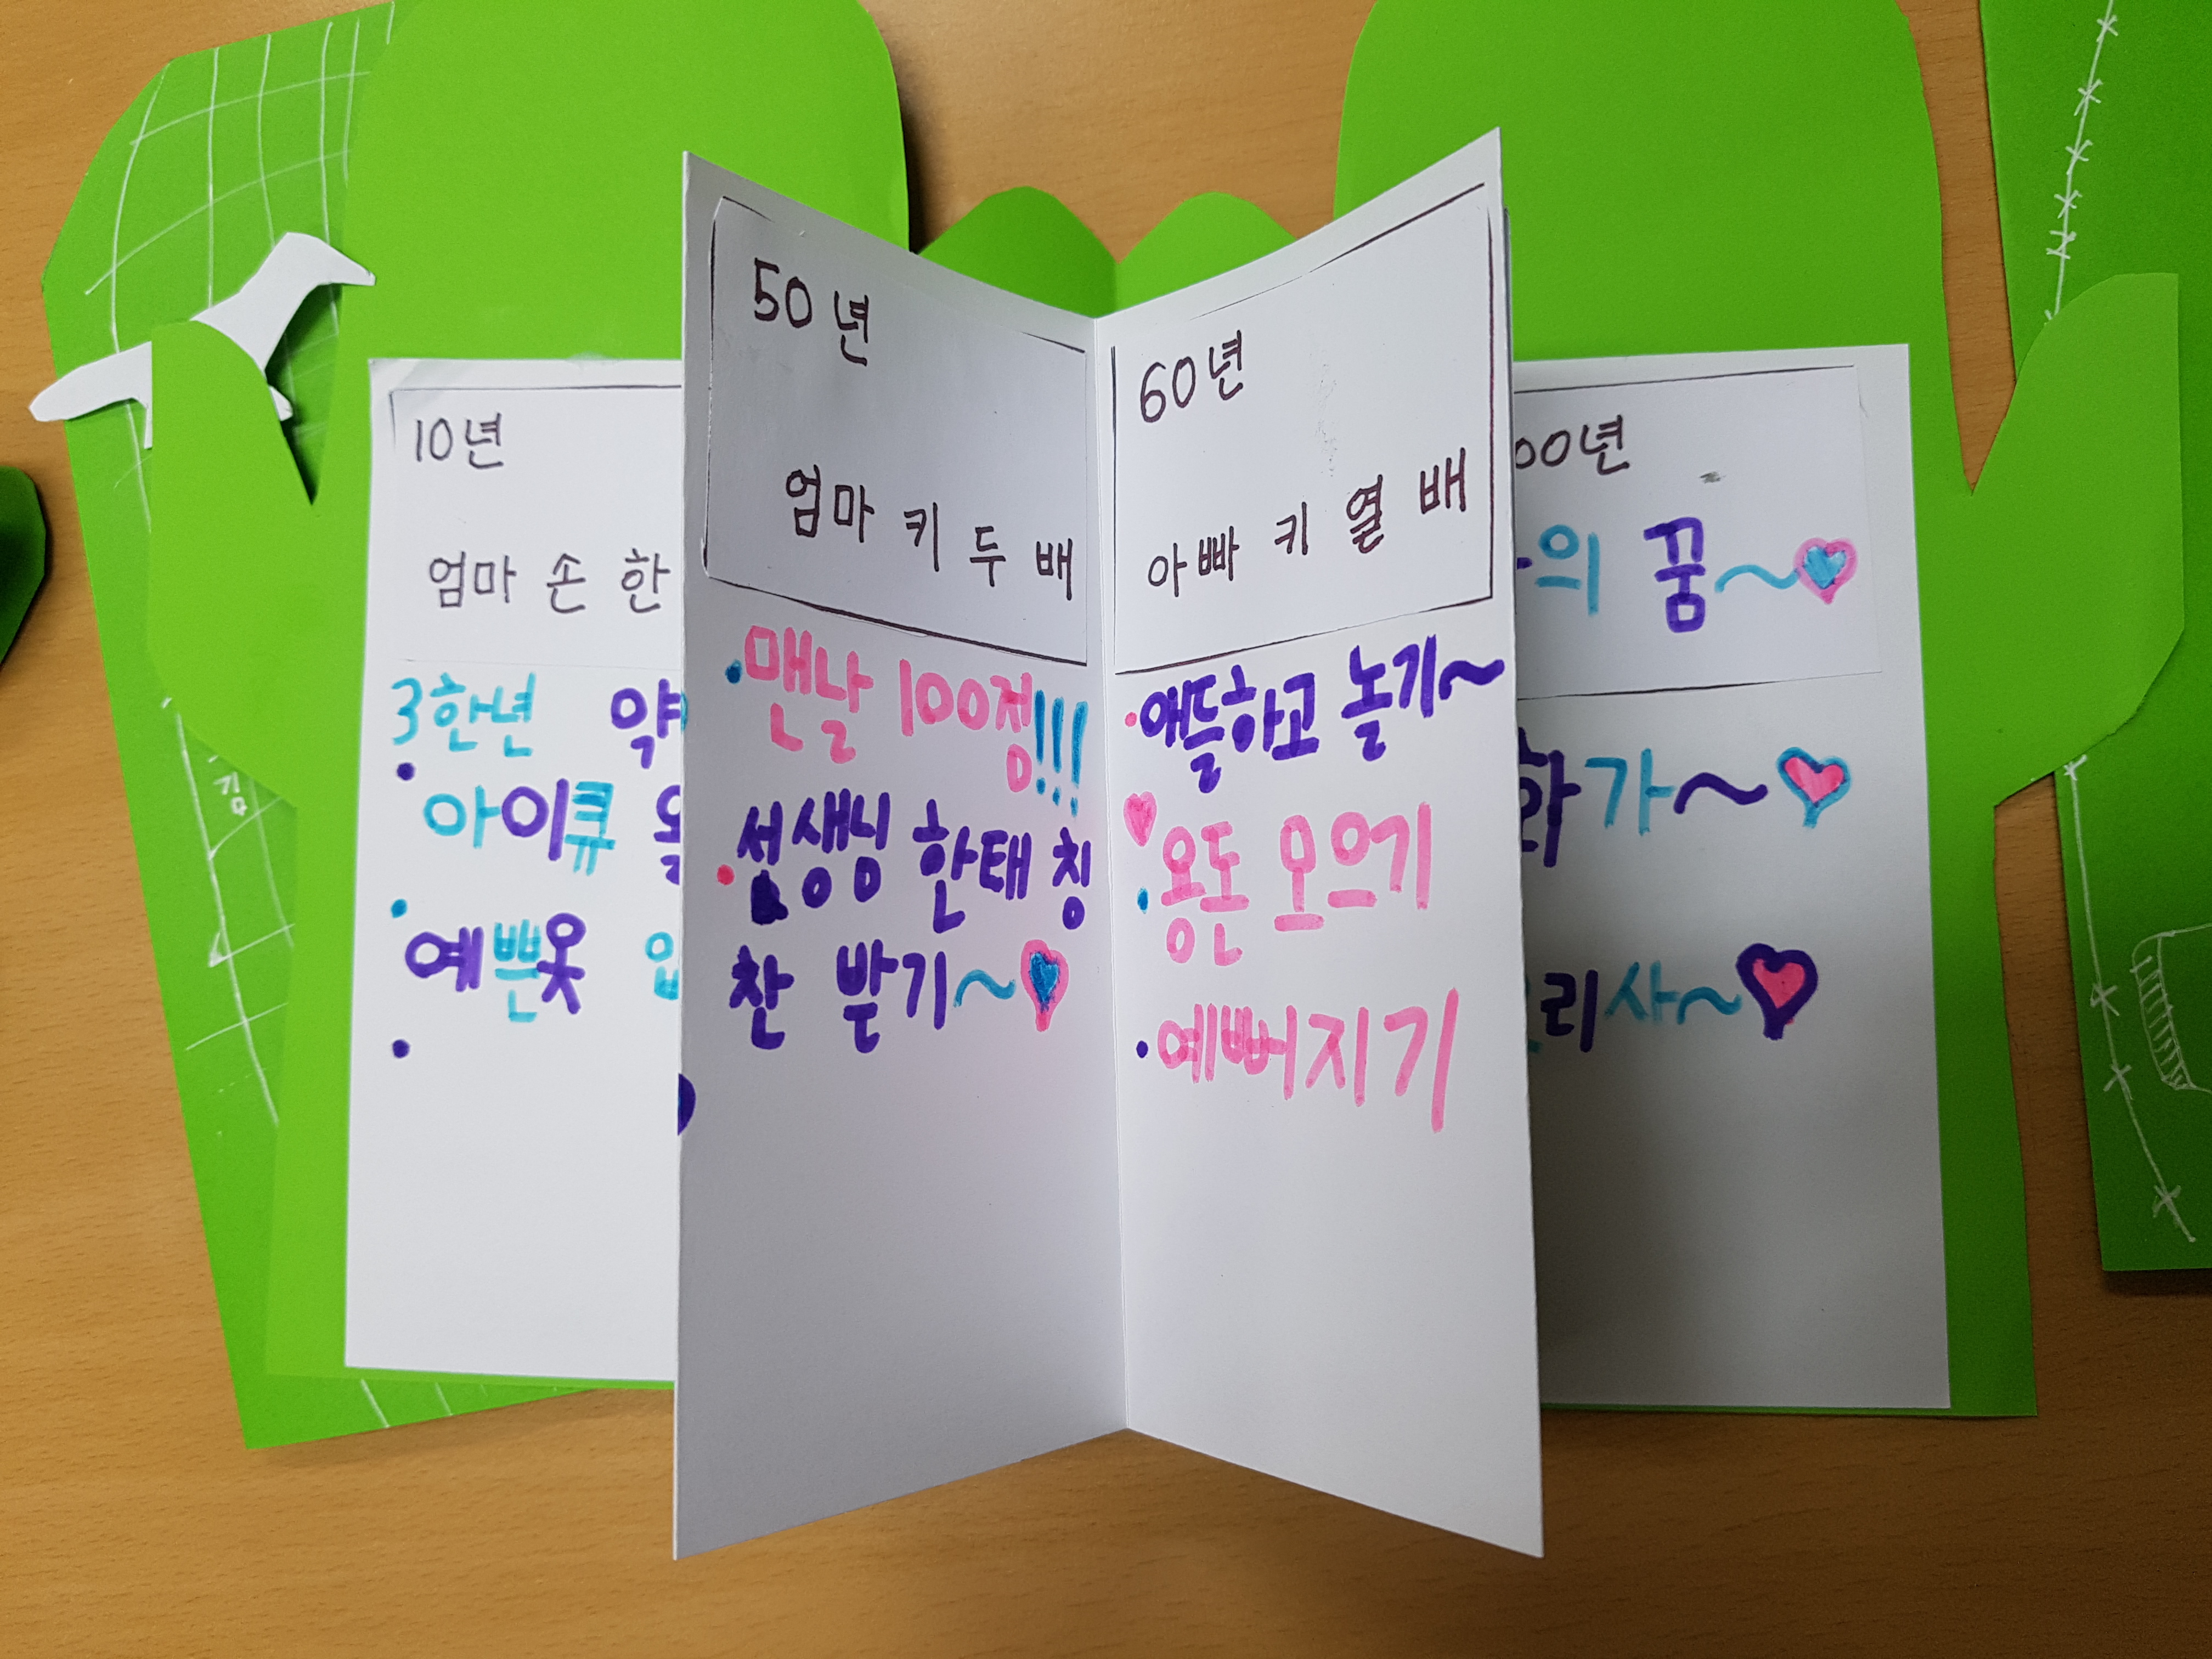 10년
엄마 손 한
3학년
아이큐
예쁜옷
50년
엄마 키 두 배
맨날 100점!!!
선생님 한태 칭
찬 받기~
60년
아빠 키 열 배
애들하고 놀기~
용돈 모으기
예뻐지기
00년
의 꿈~
화가~
리사~
김